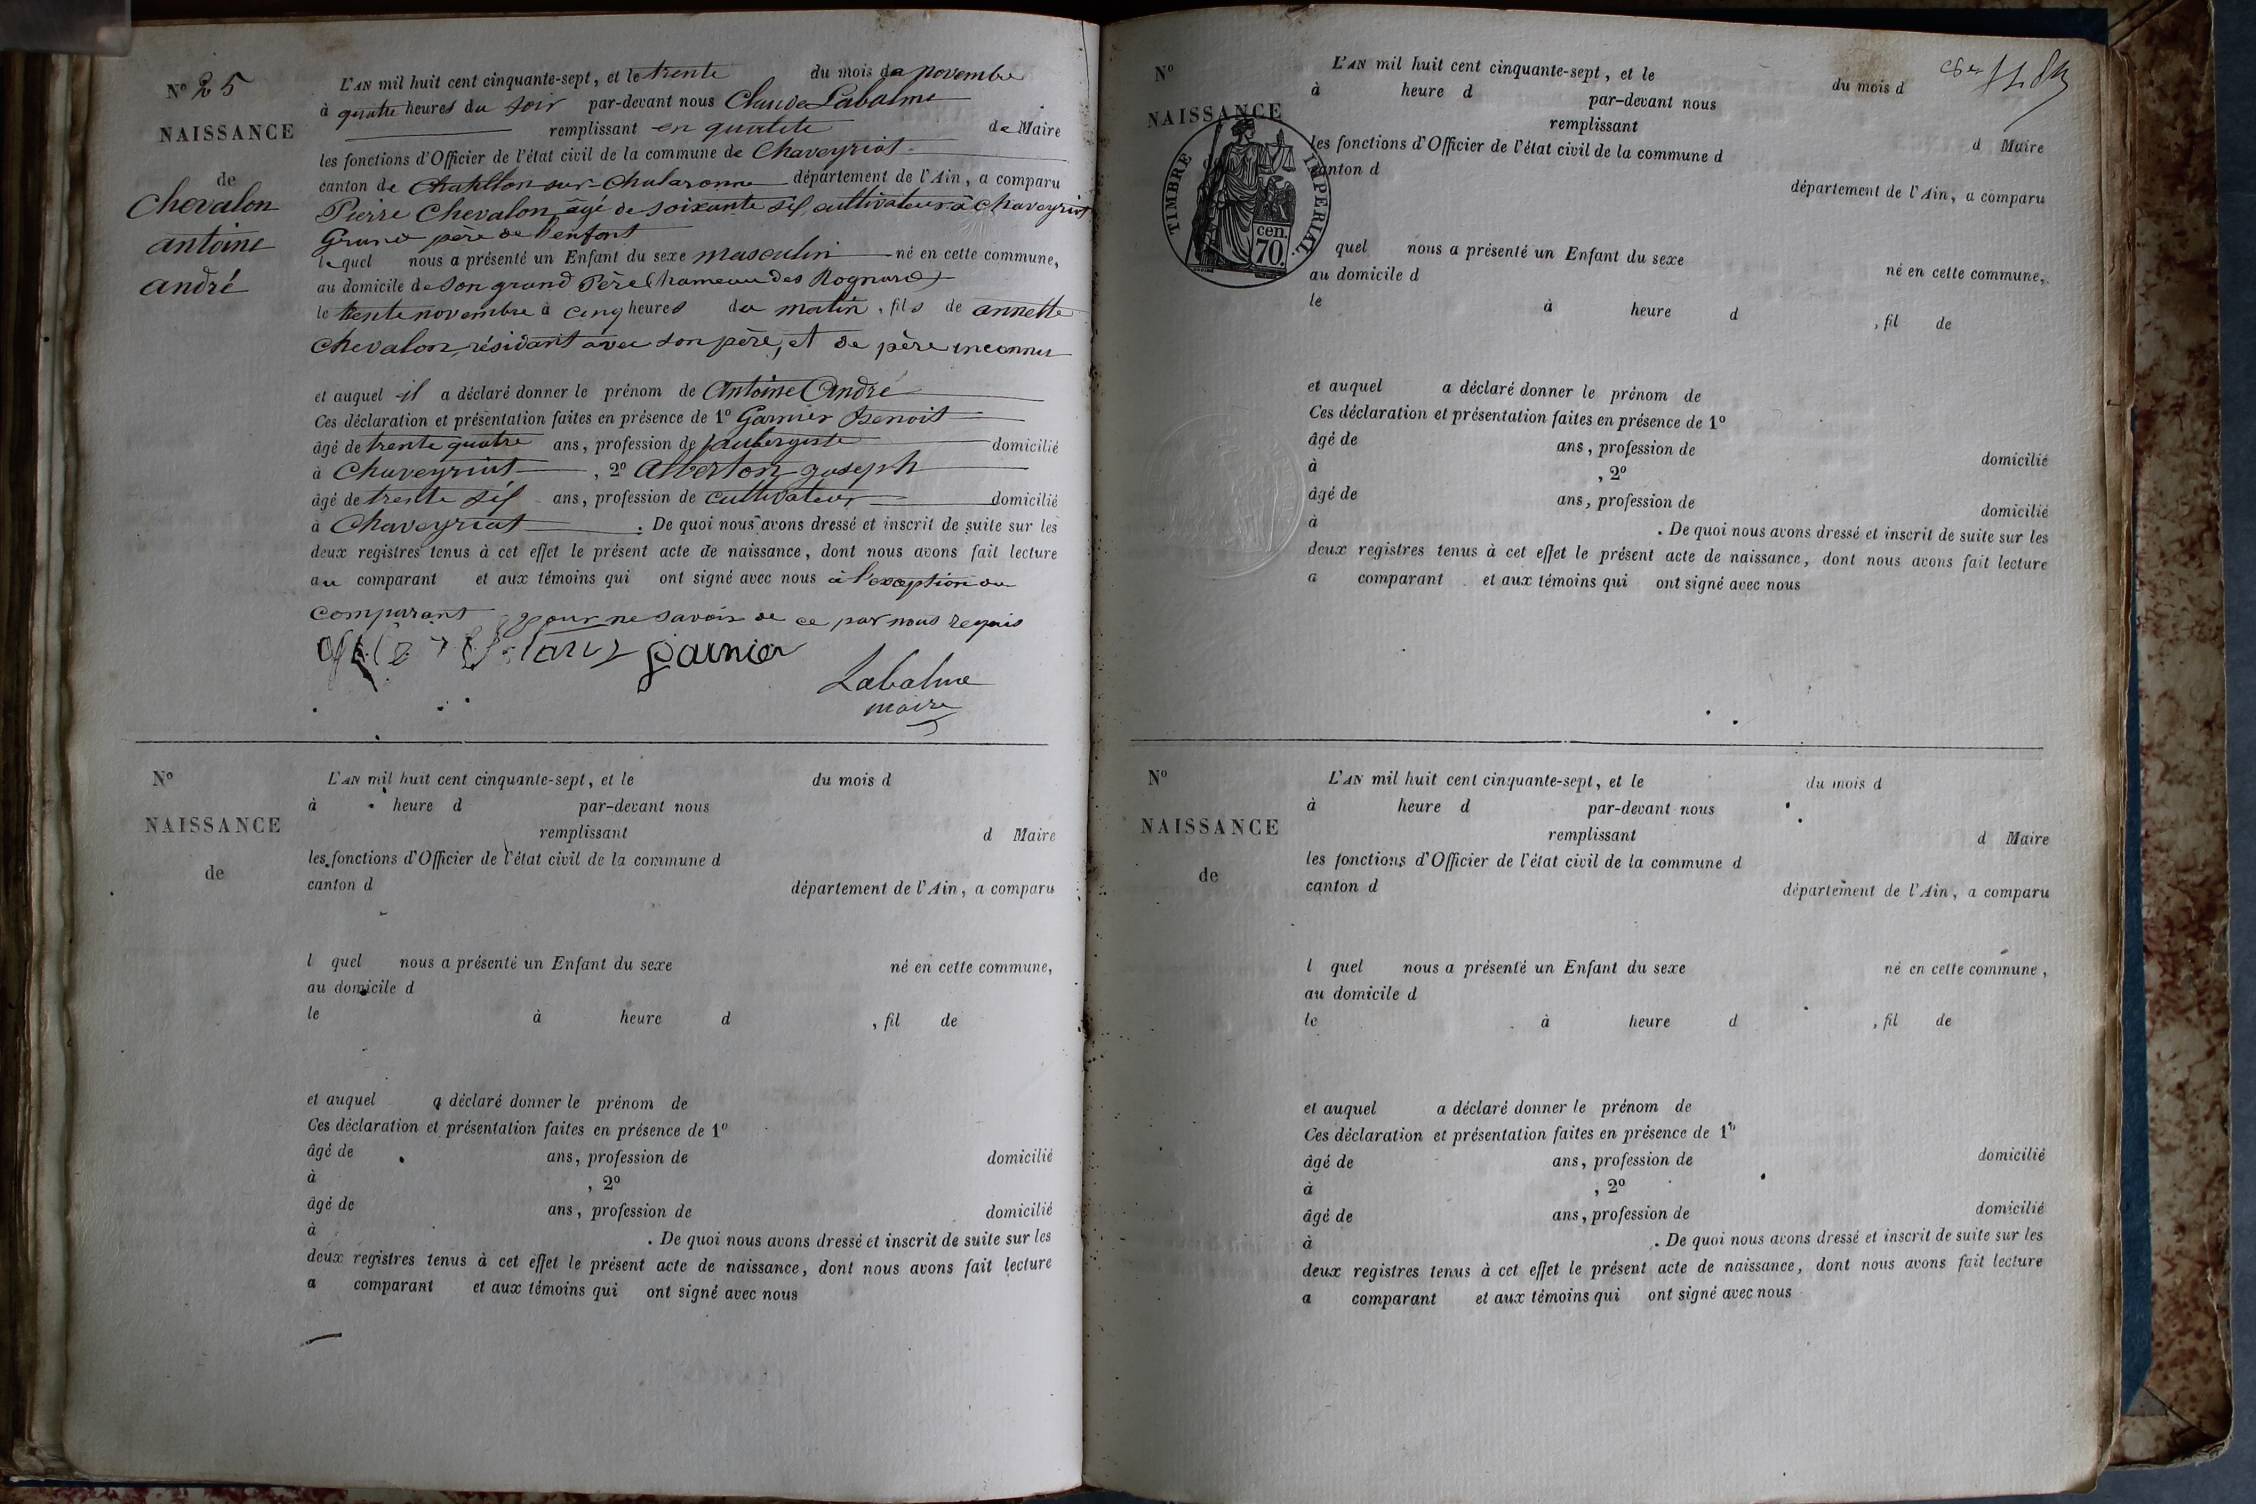 N° 25
NAISSANCE
de
Chevalon
antoine
andré
L'AN mil huit cent cinquante-sept, et le trente du mois de novembre
à quatre heures du soir par-devant nous Claude Labalme
remplissant en qualité de Maire
les fonctions d'Officier de l'état civil de la commune de Chaveyriat
canton de Chatillon-sur-Chalaronne département de l'Ain, a comparu
Pierre Chevalon, âgé de soixante six, cultivateur à Chaveyriat
Grand père de l'enfant
lequel nous a présenté un Enfant du sexe masculin né en cette commune,
au domicile de son grand Père (hameau des Rognard)
le trente novembre à cinq heures du matin, fils de annette
Chevalon, résidant avec son père, et de père inconnu
et auquel il a déclaré donner le prénom de Antoine André
Ces déclaration et présentation faites en présence de 1° Garnier Benoit
âgé de trente quatre ans, profession de aubergiste domicilié
à Chaveyriat, 2° Alberton joseph
âgé de trente six ans, profession de cultivateur domicilié
à Chaveyriat. De quoi nous avons dressé et inscrit de suite sur les
deux registres tenus à cet effet le présent acte de naissance, dont nous avons fait lecture
au comparant et aux témoins qui ont signé avec nous à l'exception du
comparant pour ne savoir de ce par nous requis
garnier
Labalme
maire
N°
NAISSANCE
de
L'AN mil huit cent cinquante-sept, et le du mois d
à heure d par-devant nous
remplissant d Maire
les fonctions d'Officier de l'état civil de la commune d
canton d département de l'Ain, a comparu
l quel nous a présenté un Enfant du sexe né en cette commune,
au domicile d
le à heure d , fil de
et auquel a déclaré donner le prénom de
Ces déclaration et présentation faites en présence de 1°
âgé de ans, profession de domicilié
à , 2°
âgé de ans, profession de domicilié
à . De quoi nous avons dressé et inscrit de suite sur les
deux registres tenus à cet effet le présent acte de naissance, dont nous avons fait lecture
a comparant et aux témoins qui ont signé avec nous
N°
NAISSANCE
TIMBRE IMPERIAL
cen.
70.
L'AN mil huit cent cinquante-sept, et le du mois d
à heure d par-devant nous
remplissant d Maire
les fonctions d'Officier de l'état civil de la commune d
canton d département de l'Ain, a comparu
quel nous a présenté un Enfant du sexe né en cette commune,
au domicile d
le à heure d , fil de
et auquel a déclaré donner le prénom de
Ces déclaration et présentation faites en présence de 1°
âgé de ans, profession de domicilié
à , 2°
âgé de ans, profession de domicilié
à . De quoi nous avons dressé et inscrit de suite sur les
deux registres tenus à cet effet le présent acte de naissance, dont nous avons fait lecture
a comparant et aux témoins qui ont signé avec nous
N°
NAISSANCE
de
L'AN mil huit cent cinquante-sept, et le du mois d
à heure d par-devant nous
remplissant d Maire
les fonctions d'Officier de l'état civil de la commune d
canton d département de l'Ain, a comparu
l quel nous a présenté un Enfant du sexe né en cette commune,
au domicile d
le à heure d , fil de
et auquel a déclaré donner le prénom de
Ces déclaration et présentation faites en présence de 1°
âgé de ans, profession de domicilié
à , 2°
âgé de ans, profession de domicilié
à . De quoi nous avons dressé et inscrit de suite sur les
deux registres tenus à cet effet le présent acte de naissance, dont nous avons fait lecture
a comparant et aux témoins qui ont signé avec nous